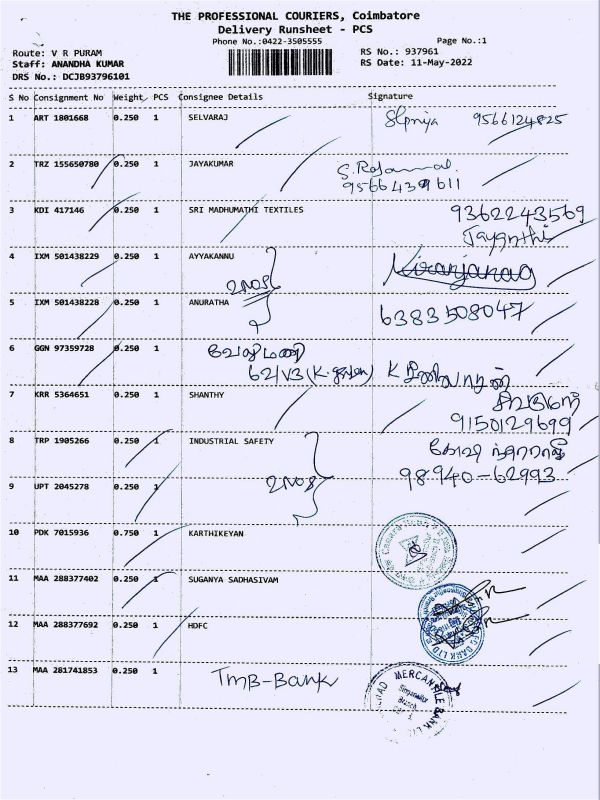 THE PROFESSIONAL COURIERS, Coimbatore
Delivery Runsheet - PCS
Phone No.:0422-3505555
Page No.:1
Route: V R PURAM
Staff: ANANDHA KUMAR
DRS No.: DCJB93796101
RS No.: 937961
RS Date: 11-May-2022
S No Consignment No Weight PCS Consignee Details Signature
1 ART 1801668 0.250 1 SELVARAJ 9566124825
2 TRZ 155650780 0.250 1 JAYAKUMAR
9566439611
3 KDI 417146 0.250 1 SRI MADHUMATHI TEXTILES 9362243569
Jayanthi
4 IXM 501438229 0.250 1 AYYAKANNU
2NOS
5 IXM 501438228 0.250 1 ANURATHA 6383508047
6 GGN 97359728 0.250 1 வேலுமணி
7 KRR 5364651 0.250 1 SHANTHY
9150129699
8 TRP 1905266 0.250 1 INDUSTRIAL SAFETY
98940-62993
9 UPT 2045278 0.250 1 2NOS
10 PDK 7015936 0.750 1 KARTHIKEYAN
11 MAA 288377402 0.250 1 SUGANYA SADHASIVAM
12 MAA 288377692 0.250 1 HDFC
13 MAA 281741853 0.250 1 TMB-Bank